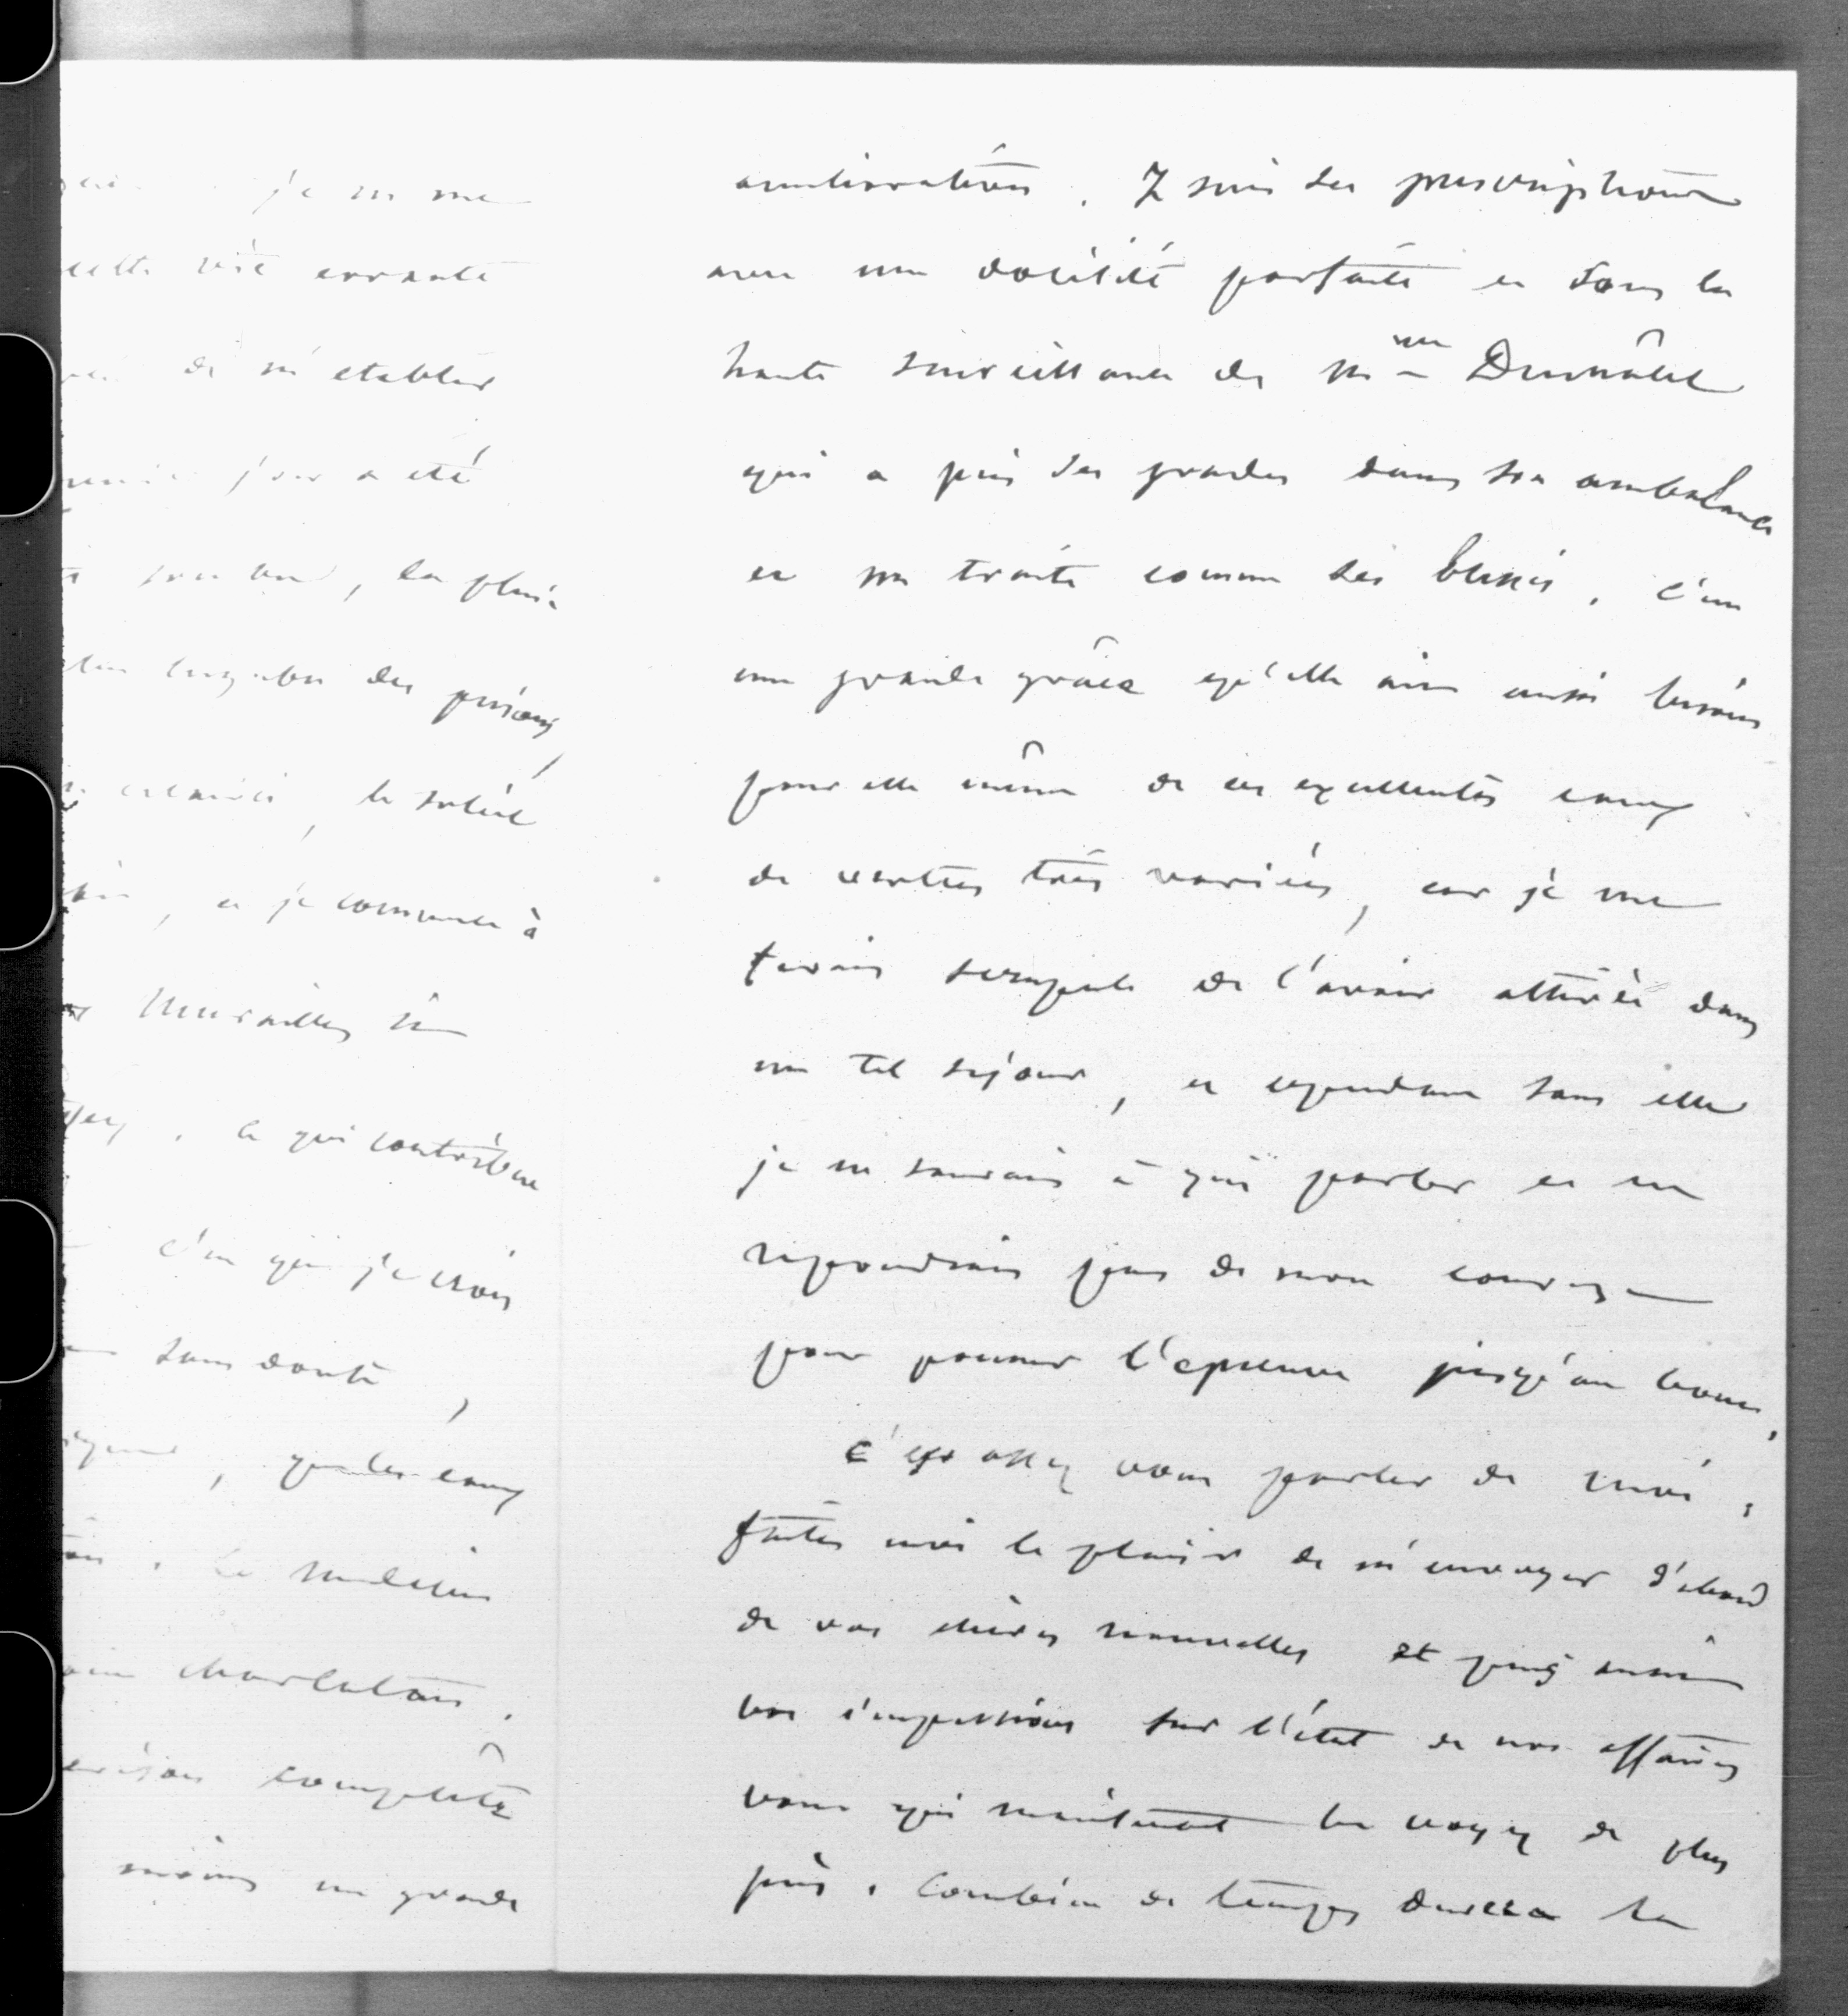 je ne me
cette vie errante
de m'etablir
jour a été
, la pluie
des prisons,
, le soleil
, et je commence à
murailles
. Ce qui contribue
c'est que je crois
sans doute,
, que les eaux
. Le medecin
charlatan.
complète
moins une grande
amélioration. Je suis ses prescriptions
avec une docilité parfaite et sous la
haute surveillance de Mme
qui a pris ses grades dans son ambulance
et me traite comme ses blessés. C'est
une grande grâce qu'elle ait aussi besoin
pour elle même de ces excellentes eaux
de vertus très variées, car je me
ferais scrupule de l'avoir attirée dans
un tel séjour, et cependant sans elle
je ne saurais à qui parler et ne
repondrais pas de mon courage
pour pousser l'epreuve jusqu'au bout.
C'est assez vous parler de moi,
faites moi le plaisir de m'envoyer d'abord
de vos chères nouvelles et puis aussi
vos impressions sur l'état de nos affaires
vous qui maintenant les voyez de plus
près. Combien de temps durera la